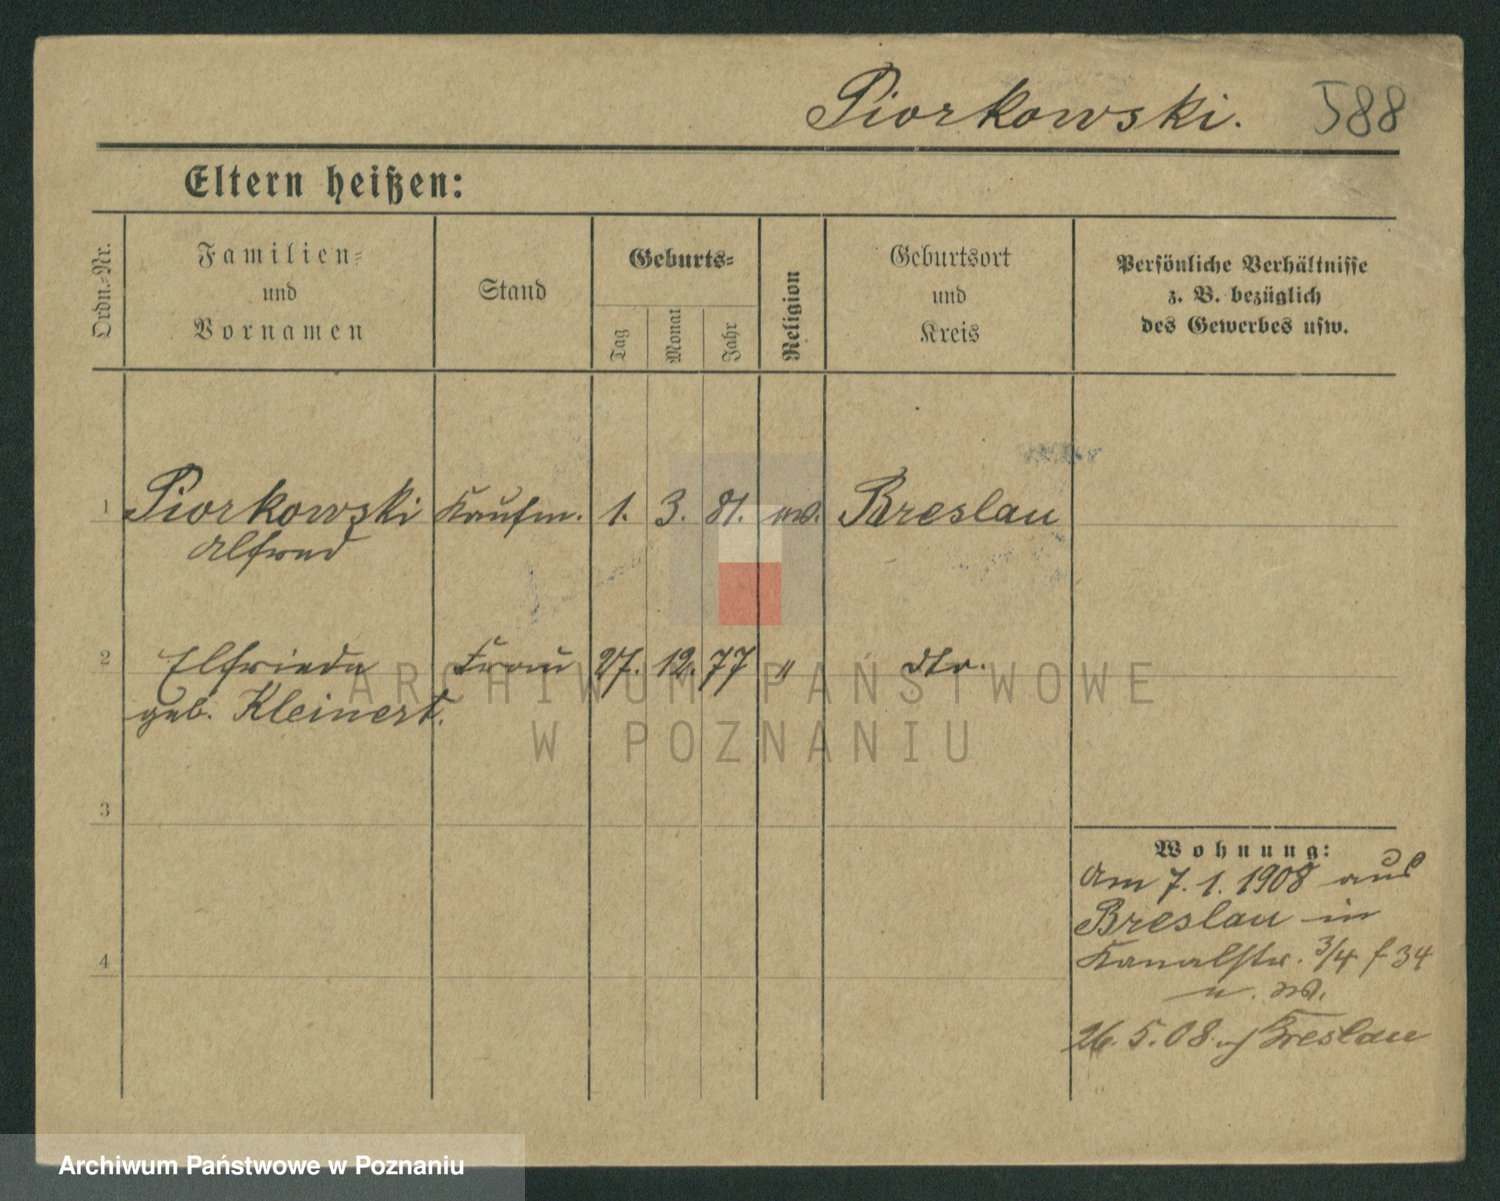 Piorkowski. 588
Eltern heißen:
Ordn.-Nr.
Familien-
und
Vornamen
Stand
Geburts-
Tag
Monat
Jahr
Religion
Geburtsort
und
Kreis
Persönliche Verhältnisse
z. B. bezüglich
des Gewerbes usw.
1 Piorkowski Kaufm. 1. 3. 81. Breslau
Alfred
2 Elfriede Frau 27. 12. 77 " dto.
geb. Kleinert.
3
4
Wohnung:
Am 7. 1. 1908 aus
Breslau in
Kanalstr. 3/4
26. 5. 08. Breslau
ARCHIWUM PAŃSTWOWE
W POZNANIU
Archiwum Państwowe w Poznaniu